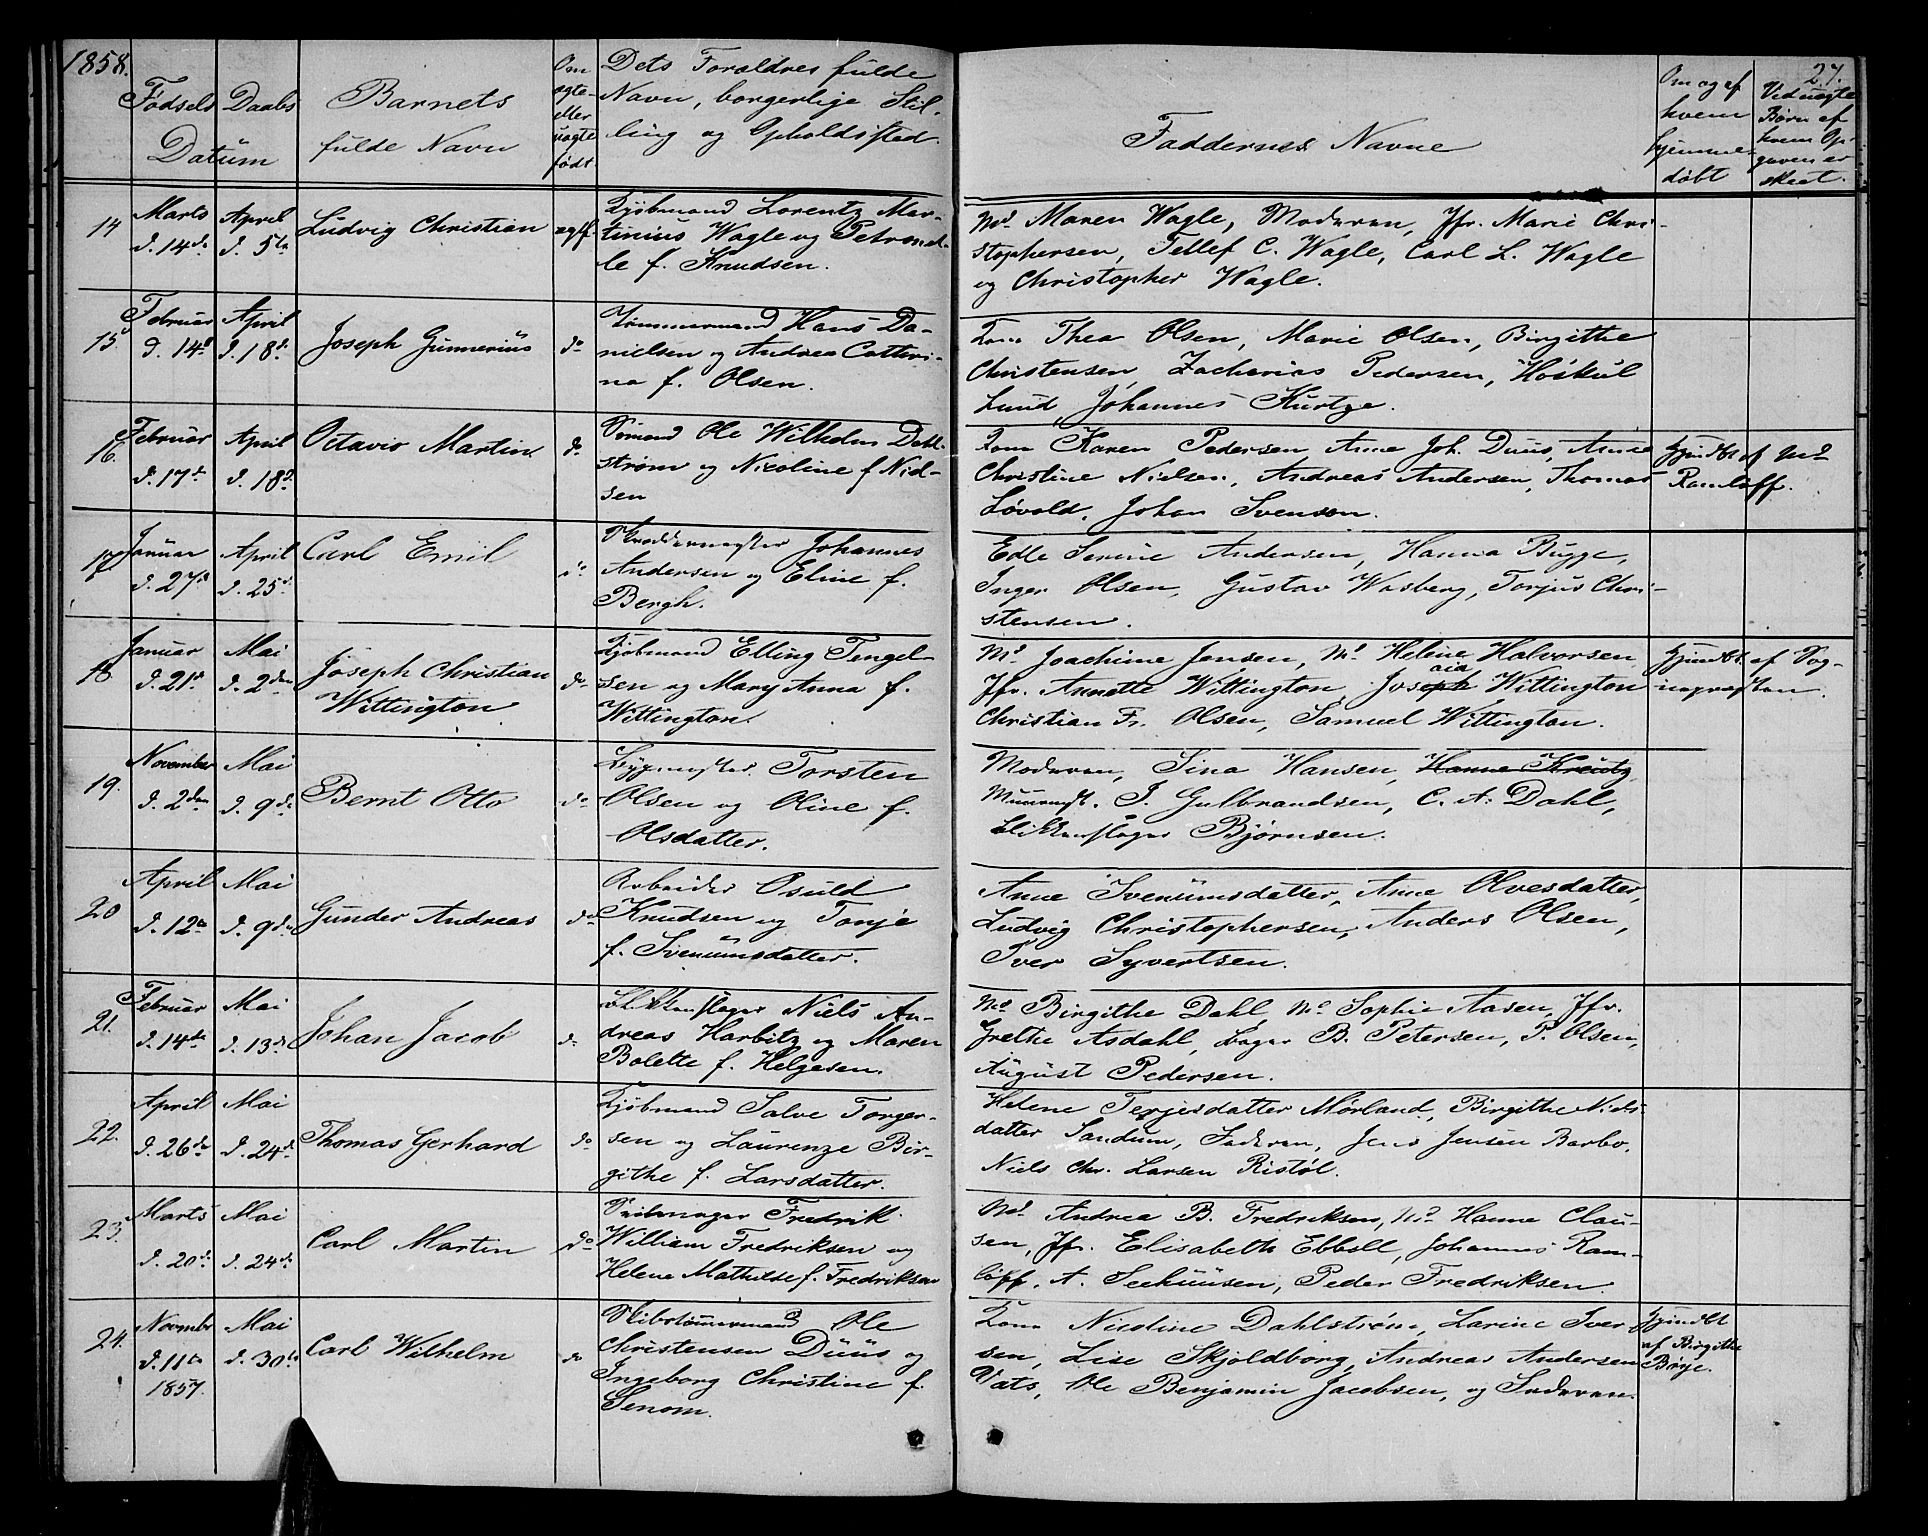 1858.
27.
Fødsels Datum
Daabs Datum
Barnets
fulde Navn
Om
ægte
eller
uægte
født
Dets Foraldres fulde
Navn, borgerlige Stil-
ling og Opholdssted.
Faddernes Navne
Om og af
hvem
hjemme-
døbt
Ved uægte
Børn af
hvem Op-
gaven er
skeet.
14
Marts
d. 14de
April
d. 5te
Ludvig Christian
ægtf.
Kjøbmand Lorentz Mar-
tinius Wagle og Petronel-
le f. Knudsen.
Md. Maren Wagle, Moderen, Jfr. Marie Chri-
stophersen, Tellef C. Wagle, Carl L. Wagle
og Christopher Wagle.
15.
Februar
d. 14d
April
d. 18d.
Joseph Gunnerius
do
Tømmermand Hans Da-
nielsen og Andrea Catteri-
na f. Olsen.
Kone Thea Olsen, Marie Olsen, Birgithe
Christensen Zacharias Pedersen, Høskul
Lund, Johannes Kurtze.
16.
Februar
d. 17d
April
d. 18d.
Octavio Martin.
do
Sømand Ole Wilhelm Dahl-
strøm og Nicoline f. Niel-
sen
Kone Karen Pedersen, Anne Joh. Duus, Anne
Christine Nielsen, Andreas Andersen, Thomas
Løvold, Johan Svensen.
Hjmdbt af Md
Ramløff.
17.
Januar
d. 27d
April
d. 25d.
Carl Emil
do
Skræddermester Johannes
Andersen og Eline f.
Bergh.
Edle Serine Andersen, Hanna Bugge,
Inger Olsen, Gustav Wasberg, Torjus Chri-
stensen.
18.
Januar
d. 21d
Mai
d. 2den
Joseph Christian
Wittington
do
Kjøbmand Elling Tengel-
sen og Mary Anna f.
Wittington.
Md. Joachime Jensen, Md. Helene Halvorsen
Jfr. Annette Wittington, Joseph Wittington
Christian Fr. Olsen, Samuel Wittington.
Hjmdbt. af Sog-
nepræsten.
19.
November
d. 2den
Mai
d. 9de
Bernt Otto
do
Bygmester Torsten
Olsen og Oline f.
Olsdatter.
Moderen, Sina Hansen, Hanne Kreutz,
Muurmst. J. Gulbrandsen, C. A. Dahl,
blikkenslager Bjørnsen.
20
April
d. 12te
Mai
d. 9de
Gunder Andreas
do
Arbeider Osuld
Knudsen og Tonje
f. Svenumsdatter.
Anne Svenumsdatter, Anne Olvesdatter,
Ludvig Christophersen, Anders Olsen,
Iver Syvertsen.
21.
Februar
d. 14de
Mai
d. 13de
Johan Jacob
do
Blikkenslager Niels An-
dreas Harbitz og Maren
Bolette f. Helgesen.
Md. Birgithe Dahl, Md. Sophie Aasen, Jfr.
Grethe Asdahl, bager B. Petersen, P. Olsen,
August Pedersen.
22.
April
d. 26de
Mai
d. 24d.
Thomas Gerhard
do
Kjøbmand Salve Torger-
sen og Laurenze Bir-
githe f. Larsdatter.
Helene Terjesdatter Mørland, Birgithe Niels-
datter Sandum, Faderen, Jens Jensen Barbo,
Niels Chr. Larsen Ristøl.
23.
Marts
d. 20d.
Mai
d. 24de
Carl Martin
do
Fredrik
William Fredriksen og
Helene Mathilde f. Fredriksen
Md. Andrea B. Fredriksen, Md. Hanne Clau-
sen, Jfr. Elisabeth Ebbell, Johannes Ram-
løff, A. Seehuusen, Peder Fredriksen.
24.
Novembr
d. 11te
1857.
Mai
d. 30te
Carl Wilhelm
do
Skibstømmermand Ole
Christensen Duus og
Ingeborg Christine f.
Senom.
Kone Nicoline Dahlstrøm, Larine Iver-
sen, Lise Skjoldborg, Andreas Andersen
Vats, Ole Benjamin Jacobsen, og Faderen.
Hjmdbt
af Birgithe
Børje.